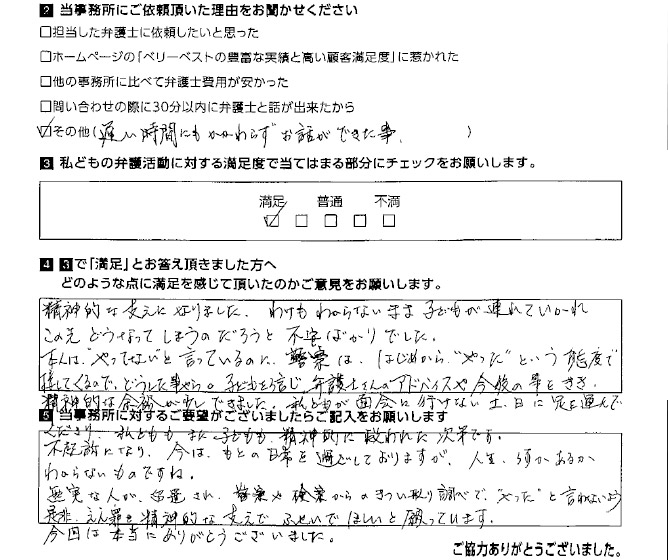 2 当事務所にご依頼頂いた理由をお聞かせください
□担当した弁護士に依頼したいと思った
□ホームページの「ベリーベストの豊富な実績と高い顧客満足度」に惹かれた
□他の事務所に比べて弁護士費用が安かった
□問い合わせの際に30分以内に弁護士と話が出来たから
☑その他(遅い時間にもかかわらずお話ができた事。)
3 私どもの弁護活動に対する満足度で当てはまる部分にチェックをお願いします。
満足 普通 不満
☑ □ □ □ □
4 3で「満足」とお答え頂きました方へ
どのような点に満足を感じて頂いたのかご意見をお願いします。
精神的な支えになりました。わけもわからないまま子どもが連れていかれ
この先どうなってしまうのだろうと不安ばかりでした。
本人は"やってない"と言っているのに、警察は、はじめから"やった"という態度で
接してくるので、どうした事やら。子どもを信じ、弁護士さんのアドバイスや今後の事をきき、
精神的な余裕が少しできました。私どもが面会に行けない土、日に足を運んで
5 当事務所に対するご要望がございましたらご記入をお願いします
くださり、私どももまた子どもも、精神的に救われた次第です。
不起訴になり、今は、もとの日常を過ごしておりますが、人生、何があるか
わからないものですね。
無実な人が、逮捕され、警察や検察からのきつい取り調べで、"やった"と言わないよう
是非、えん罪を精神的な支えで、ふせいでほしいと願っています。
今回は本当にありがとうございました。
ご協力ありがとうございました。